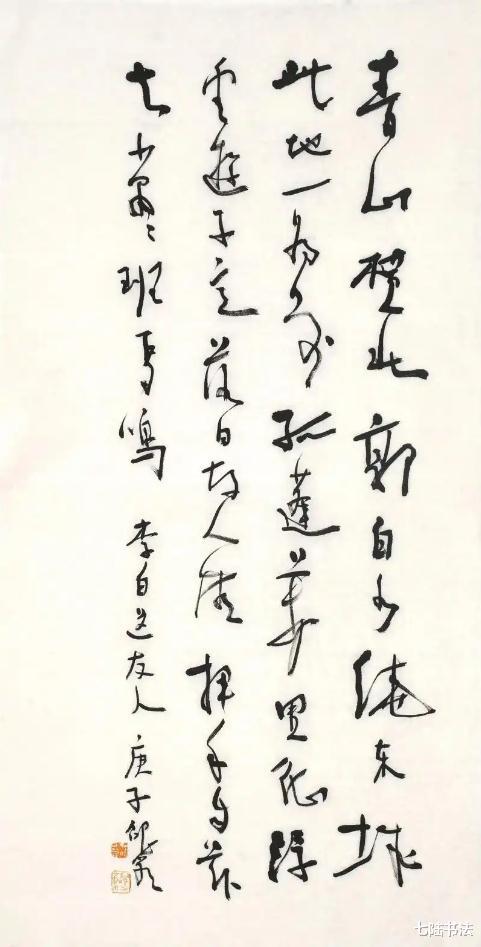 青山横北郭白水绕东城
此地一為别孤蓬萬里征浮
雲遊子意落日故人情挥手自兹
去萧々班马鸣 李白送友人 庚子
七陆书法